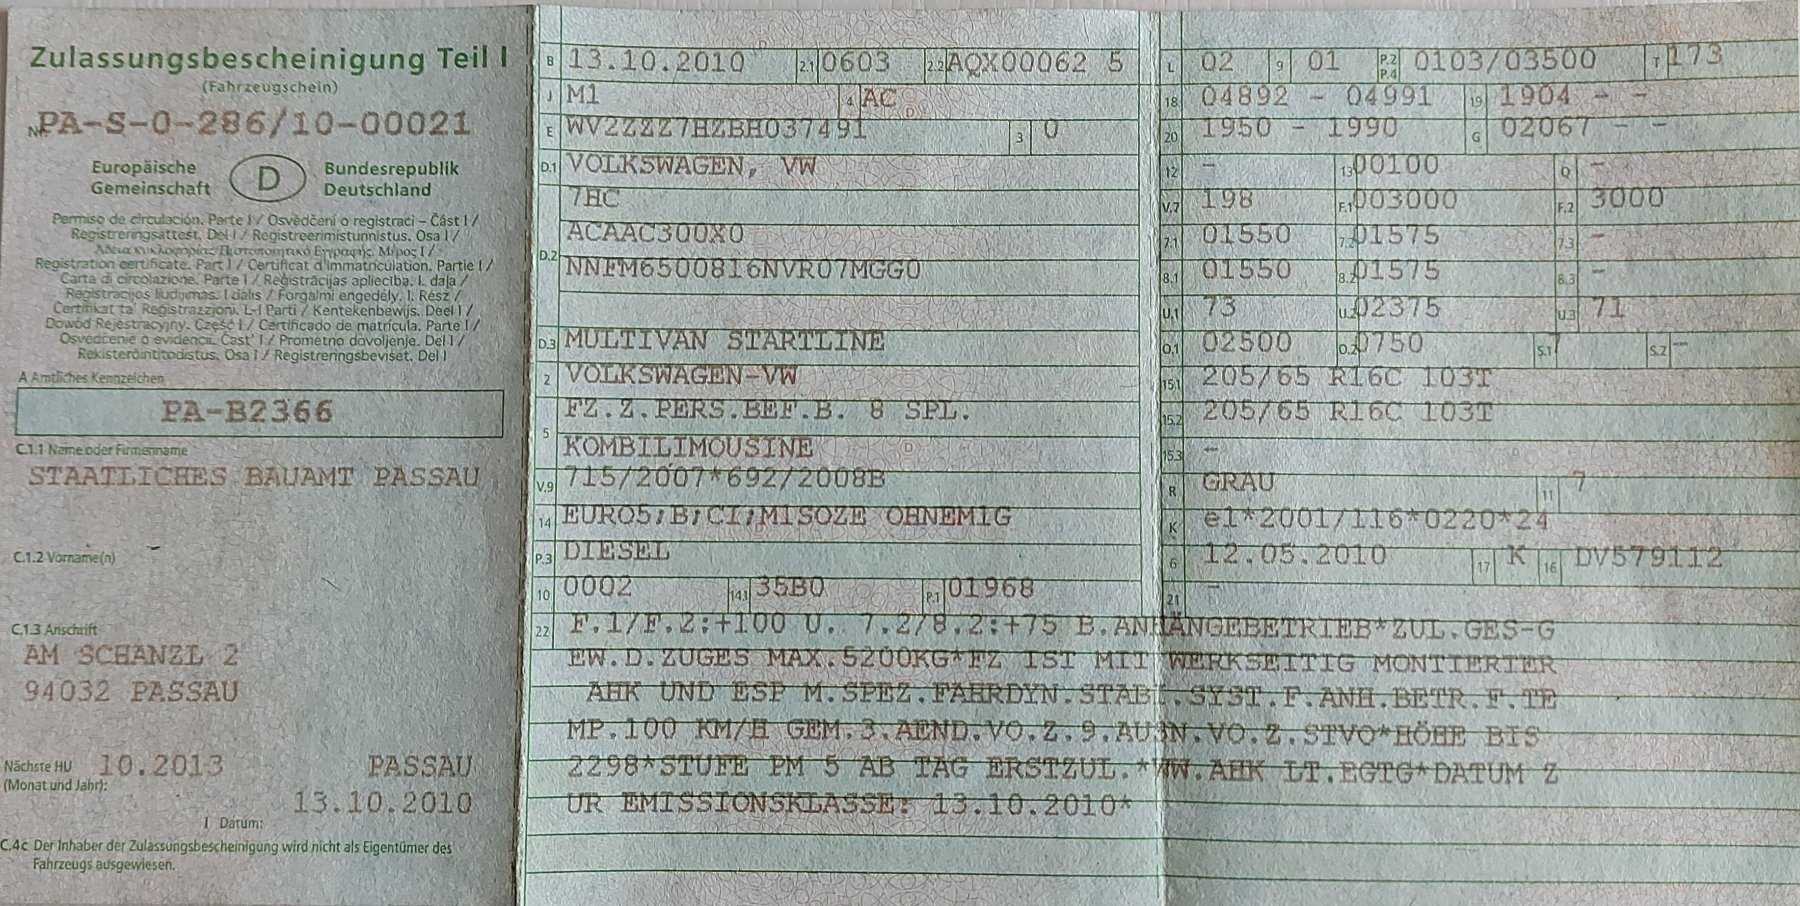 Zulassungsbescheinigung Teil I
(Fahrzeugschein)
Nr. PA-S-0-286/10-00021
Europäische Gemeinschaft D Bundesrepublik Deutschland
Permiso de circulación. Parte I / Osvědčení o registraci – Část I /
Registreringsattest. Del I / Registreerimistunnistus. Osa I /
Άδεια κυκλοφορίας / Πιστοποιητικό Εγγραφής. Μέρος I /
Registration certificate. Part I / Certificat d'immatriculation. Partie I /
Carta di circolazione. Parte I / Reģistrācijas apliecība. I. daļa /
Registracijos liudijimas. I dalis / Forgalmi engedély. I. Rész /
Ċertifikat ta' Reġistrazzjoni. L-I Parti / Kentekenbewijs. Deel I /
Dowód Rejestracyjny. Część I / Certificado de matrícula. Parte I /
Osvedčenie o evidencii. Časť I / Prometno dovoljenje. Del I /
Rekisteröintitodistus. Osa I / Registreringsbeviset. Del I
A Amtliches Kennzeichen
PA-B2366
C.1.1 Name oder Firmenname
STAATLICHES BAUAMT PASSAU
C.1.2 Vorname(n)
C.1.3 Anschrift
AM SCHANZL 2
94032 PASSAU
Nächste HU 10.2013 PASSAU
(Monat und Jahr):
13.10.2010
I Datum:
C.4c Der Inhaber der Zulassungsbescheinigung wird nicht als Eigentümer des
Fahrzeugs ausgewiesen.
B 13.10.2010 2.1 0603 2.2 AQX00062 5
J M1 4 AC
E WV2ZZZ7HZBH037491 3 0
D.1 VOLKSWAGEN, VW
7HC
ACAAC300X0
D.2 NNFM6500816NVR07MGG0
D.3 MULTIVAN STARTLINE
2 VOLKSWAGEN-VW
FZ.Z.PERS.BEF.B. 8 SPL.
5 KOMBILIMOUSINE
V.9 715/2007*692/2008B
14 EURO5;B;CI;M1SOZE OHNEM1G
P.3 DIESEL
10 0002 14.1 35B0 P.1 01968
L 02 9 01 P.2 P.4 0103/03500 T 173
18 04892 - 04991 19 1904 - -
20 1950 - 1990 G 02067 - -
12 - 13 00100 Q -
V.7 198 F.1 003000 F.2 3000
7.1 01550 7.2 01575 7.3 -
8.1 01550 8.2 01575 8.3 -
U.1 73 U.2 02375 U.3 71
O.1 02500 O.2 0750 S.1 7 S.2 -
15.1 205/65 R16C 103T
15.2 205/65 R16C 103T
15.3 -
R GRAU 11 7
K e1*2001/116*0220*24
6 12.05.2010 17 K 16 DV579112
21 -
22 F.1/F.2:+100 U. 7.2/8.2:+75 B.ANHÄNGEBETRIEB*ZUL.GES-G
EW.D.ZUGES MAX.5200KG*FZ IST MIT WERKSEITIG MONTIERTER
AHK UND ESP M.SPEZ.FAHRDYN.STABI.SYST.F.ANH.BETR.F.TE
MP.100 KM/H GEM.3.AEND.VO.Z.9.AUSN.VO.Z.STVO*HÖHE BIS
2298*STUFE PM 5 AB TAG ERSTZUL.*WW.AHK LT.EGTG*DATUM Z
UR EMISSIONSKLASSE: 13.10.2010*